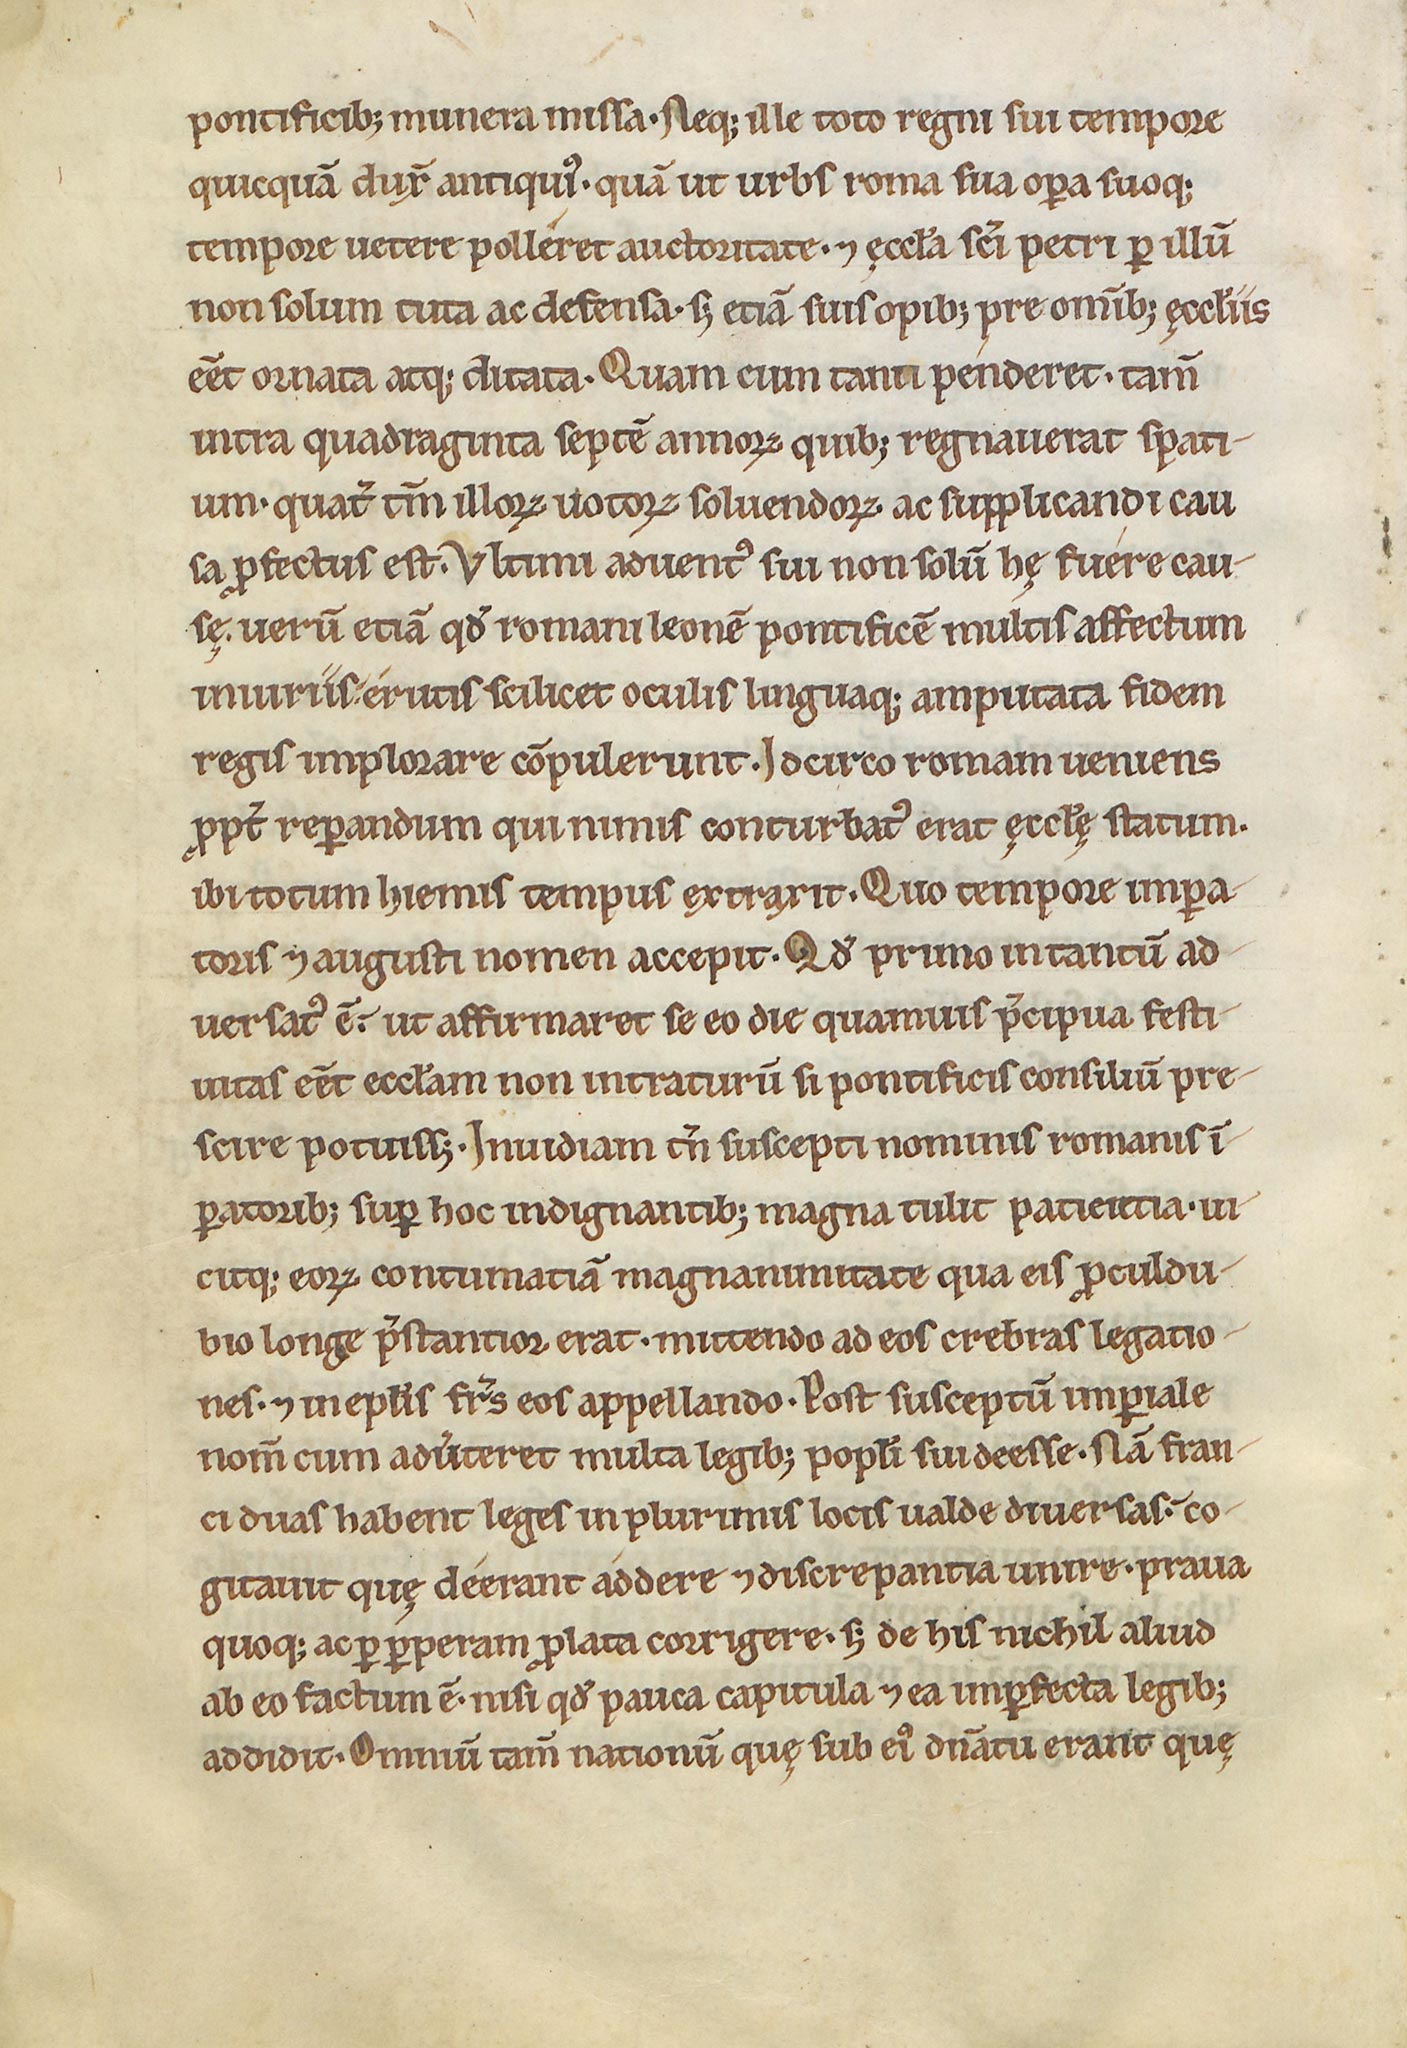 pontificib; munera missa. Neq; ille toto regni sui tempore
quicquā dux̄ antiquiꝰ. quā ut urbs roma sua oꝑa suoq;
tempore uetere polléret auctoritate. ⁊ ęccl̄a sc̄i petri ꝑ illū
non solum tuta ac defensa. sꝫ etiā suis opib; pre om̄ib; ęccl̄iis
eēt ornata atq; ditata. Quam cum tanti pénderet. tam̄
intra quadraginta septē annoꝝ quib; regnauerat spati-
um. quat̄ tm̄ illoꝝ uotoꝝ soluendoꝝ. ac supplicandi cau
sa ꝓfectus est. Vltimi aduentꝰ sui non solū hę fuére cau-
sę. uerū etiā qđ romani leonē pontificē multis affectum
iniuriis. érutis scilicet oculis linguaq; amputata fidem
regis implorare cōpulerunt. Idcirco romam ueniens
ꝓpt̄ reꝑandum qui nimis conturbatꝰ erat ęccl̄ę statum.
ibi totum hiemis tempus extraxit. Quo tempore imꝑa-
toris ⁊ augusti nomen accepit. Qđ primo in tantū ad-
uersatꝰ ē. ut affirmaret se eo die quamuis p̄cipua festi-
uitas eēt eccl̄am non intraturū si pontificis consiliū pre-
scire potuissꝫ. Inuidiam tn̄ suscepti nominis romanis ī-
ꝑatorib; suꝑ hoc indignantib; magna tulit patientia. ui-
citq; eoꝝ contumatiā magnanimitate qua eis ꝓculdu-
bio longe p̄stantior erat. mittendo ad eos crebras legatio-
nes. ⁊ in epl̄is fr̄s eos appellando. Post susceptū imꝑiale
nom̄ cum adu̓teret multa legib; popl̄i sui deesse. Nā fran-
ci duas habent leges in plurimis locis ualde diuersas. co-
gitauit quę déerant áddere ⁊ discrepantia unire. praua
quoq; ac ꝑ ꝑperam ꝓlata corrigere. sꝫ de his nichil aliud
ab eo factum ē. nisi qđ pauca capitula ⁊ ea imꝑfecta legib;
addidit. Omniū tam̄ nationū quę sub eiꝰ dn̄atu erant quę